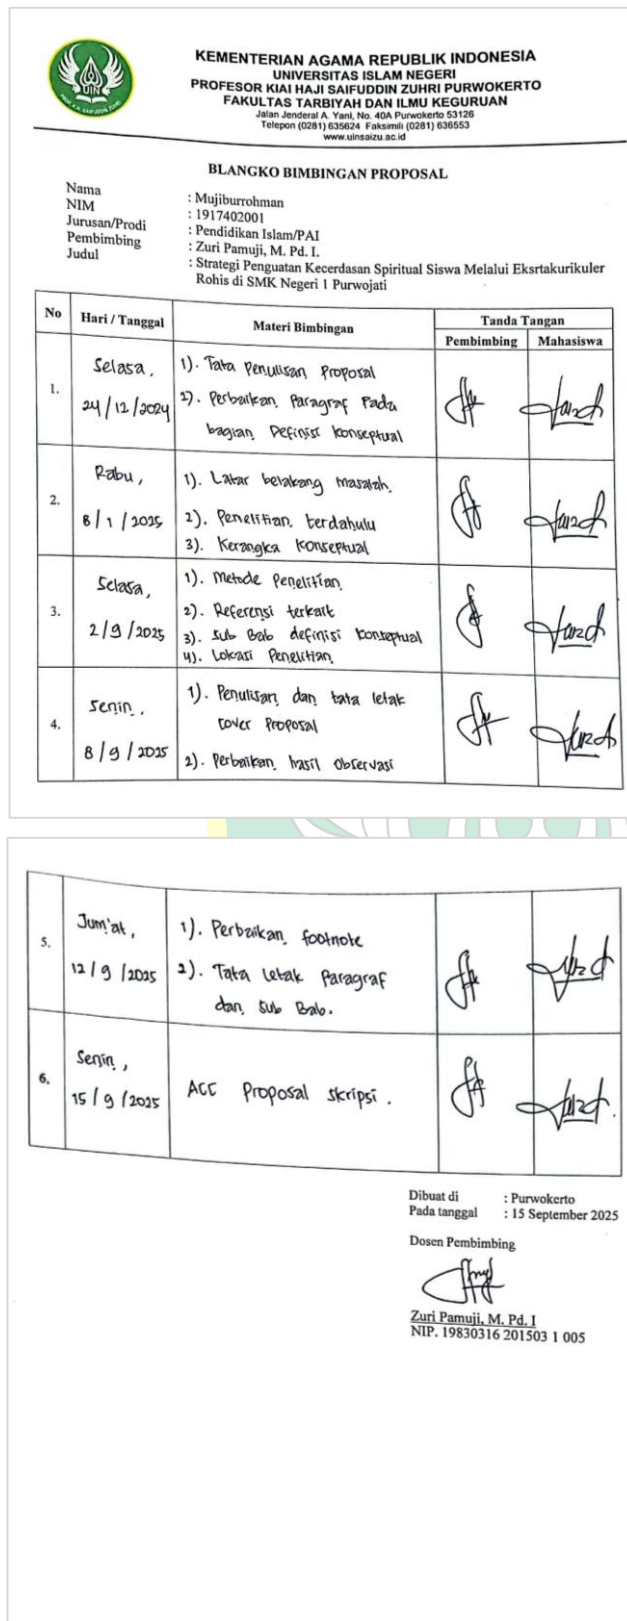 KEMENTERIAN AGAMA REPUBLIK INDONESIA
UNIVERSITAS ISLAM NEGERI
PROFESOR KIAI HAJI SAIFUDDIN ZUHRI PURWOKERTO
FAKULTAS TARBIYAH DAN ILMU KEGURUAN
Jalan Jenderal A. Yani, No. 40A Purwokerto 53126
Telepon (0281) 635624 Faksimili (0281) 636553
www.uinsaizu.ac.id
UIN
BLANGKO BIMBINGAN PROPOSAL
Nama : Mujiburrohman
NIM : 1917402001
Jurusan/Prodi : Pendidikan Islam/PAI
Pembimbing : Zuri Pamuji, M. Pd. I.
Judul : Strategi Penguatan Kecerdasan Spiritual Siswa Melalui Eksrtakurikuler
Rohis di SMK Negeri 1 Purwojati
No Hari / Tanggal Materi Bimbingan Tanda Tangan
Pembimbing Mahasiswa
1. Selasa, 24/12/2024
1). Tata Penulisan Proposal
2). Perbaikan Paragraf Pada
bagian Definisi konseptual
2. Rabu, 8/1/2025
1). Latar belakang masalah
2). Penelitian terdahulu
3). Kerangka Konseptual
3. Selasa, 2/9/2025
1). Metode Penelitian
2). Referensi terkait
3). Sub Bab definisi konseptual
4). Lokasi Penelitian
4. Senin, 8/9/2025
1). Penulisan dan tata letak
cover Proposal
2). Perbaikan hasil observasi
5. Jum'at, 12/9/2025
1). Perbaikan footnote
2). Tata Letak Paragraf
dan Sub Bab.
6. Senin, 15/9/2025
ACC Proposal skripsi.
Dibuat di : Purwokerto
Pada tanggal : 15 September 2025
Dosen Pembimbing
Zuri Pamuji, M. Pd. I
NIP. 19830316 201503 1 005